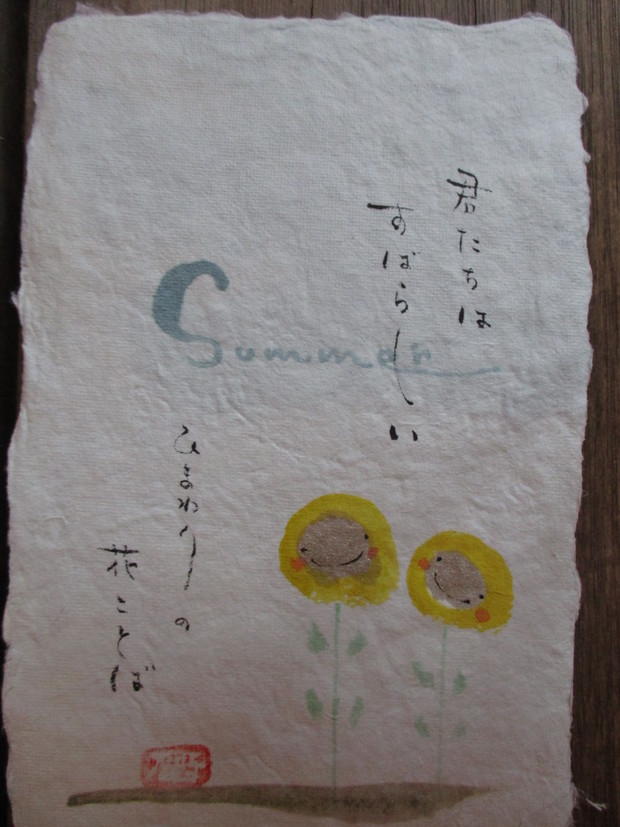 君たちは
すばらしい
Summer
ひまわりの
花ことば